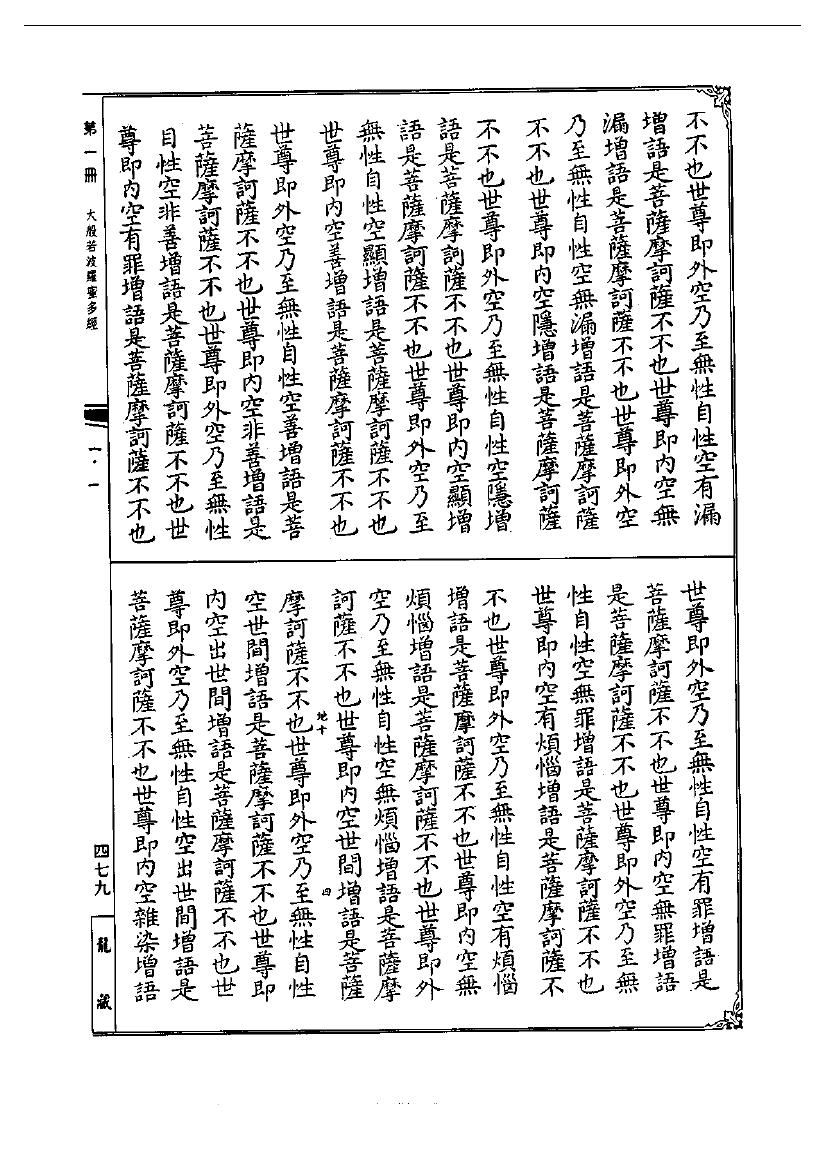 不不也世尊即外空乃至無性自性空有漏
增語是菩薩摩訶薩不不也世尊即內空無
漏增語是菩薩摩訶薩不不也世尊即外空
乃至無性自性空無漏增語是菩薩摩訶薩
不不也世尊即內空隱增語是菩薩摩訶薩
不不也世尊即外空乃至無性自性空隱增
語是菩薩摩訶薩不不也世尊即內空顯增
語是菩薩摩訶薩不不也世尊即外空乃至
無性自性空顯增語是菩薩摩訶薩不不也
世尊即內空善增語是菩薩摩訶薩不不也
世尊即外空乃至無性自性空善增語是菩
薩摩訶薩不不也世尊即內空非善增語是
菩薩摩訶薩不不也世尊即外空乃至無性
自性空非善增語是菩薩摩訶薩不不也世
尊即內空有罪增語是菩薩摩訶薩不不也
世尊即外空乃至無性自性空有罪增語是
菩薩摩訶薩不不也世尊即內空無罪增語
是菩薩摩訶薩不不也世尊即外空乃至無
性自性空無罪增語是菩薩摩訶薩不不也
世尊即內空有煩惱增語是菩薩摩訶薩不
不也世尊即外空乃至無性自性空有煩惱
增語是菩薩摩訶薩不不也世尊即內空無
煩惱增語是菩薩摩訶薩不不也世尊即外
空乃至無性自性空無煩惱增語是菩薩摩
訶薩不不也世尊即內空世間增語是菩薩
地十 四
摩訶薩不不也世尊即外空乃至無性自性
空世間增語是菩薩摩訶薩不不也世尊即
內空出世間增語是菩薩摩訶薩不不也世
尊即外空乃至無性自性空出世間增語是
菩薩摩訶薩不不也世尊即內空雜染增語
第一冊 大般若波羅蜜多經
一·一
四七九
龍藏